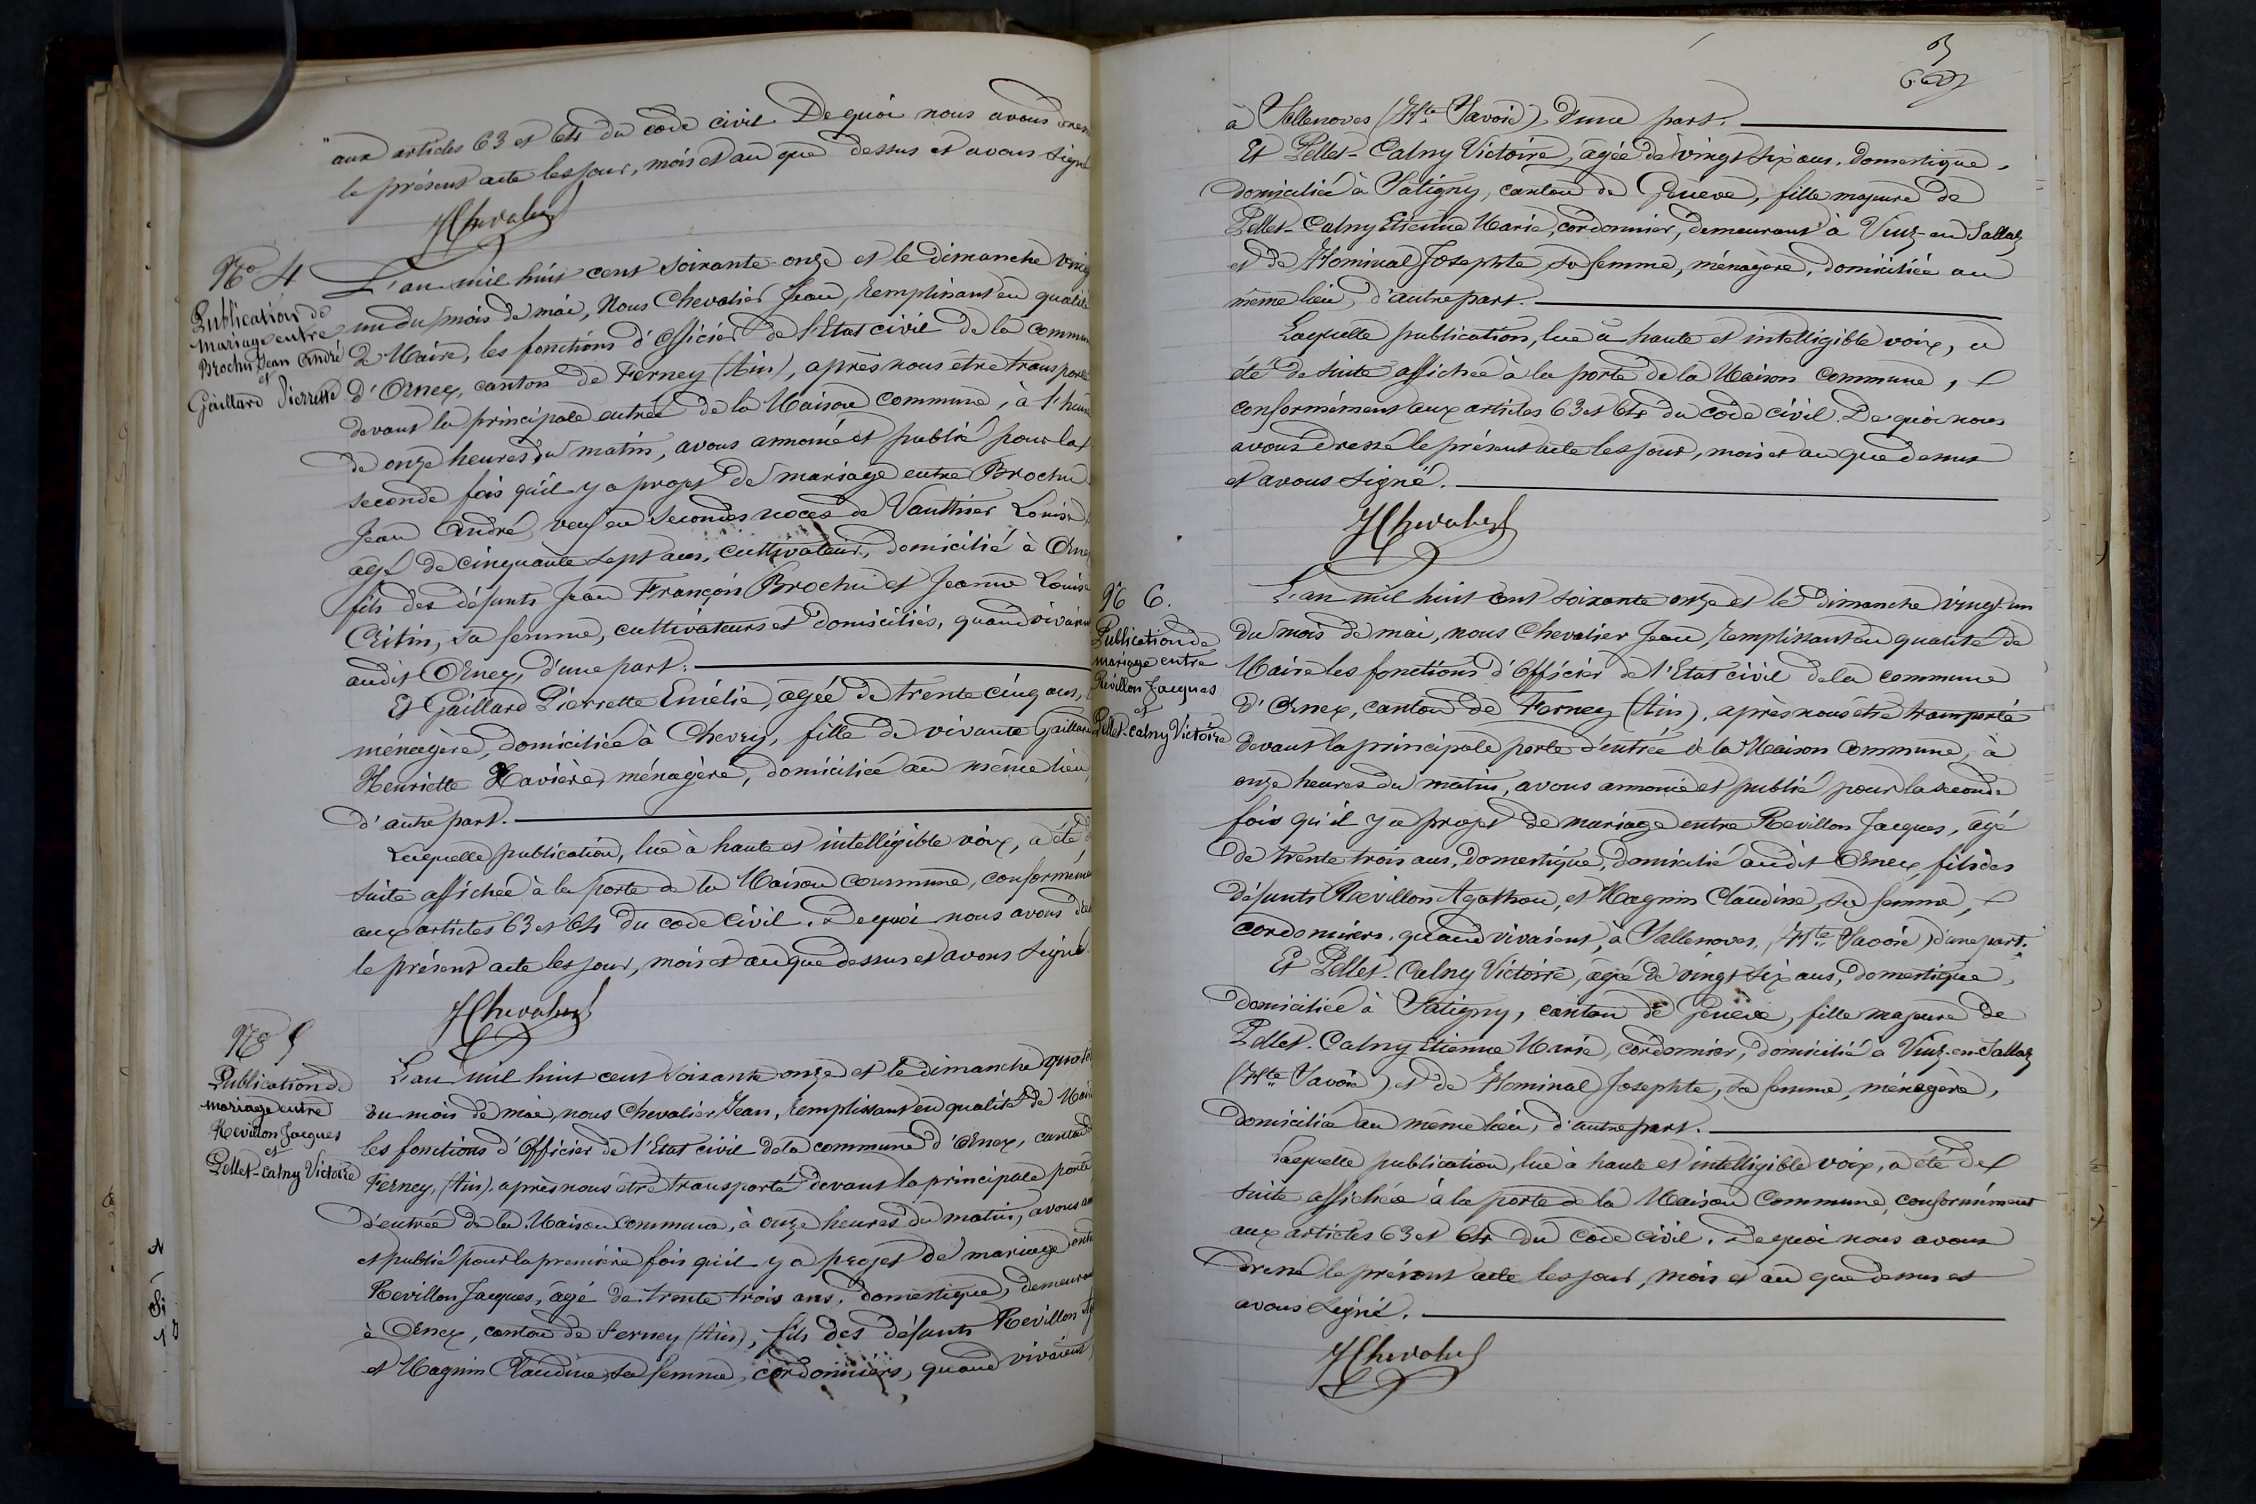 aux articles 63 et 64 du code civil. De quoi nous avons dressé
le présent acte les jour, mois et an que dessus et avons signé
JChevalier
No 4
Publication de
mariage entre
Brochu Jean André
et
Gaillard Pierrette
L'an mil huit cent soixante-onze et le dimanche vingt
un du mois de mai, Nous Chevalier Jean, remplissant en qualité
de Maire, les fonctions d'officier de l'Etat civil de la commune
d'Ornex, canton de Ferney (Ain), après nous être transporté
devant la principale entrée de la Maison commune, à l'heure
de onze heures du matin, avons annoncé et publié pour la
seconde fois qu'il y a projet de mariage entre Brochu
Jean André, veuf en secondes noces de Vauthier Louise
agé de cinquante sept ans, cultivateur, domicilié à Ornex
fils des défunts Jean François Brochu et Jeanne Louise
Critin, sa femme, cultivateurs et domiciliés, quand vivaient
audit Ornex, d'une part.
Et Gaillard Pierrette Emélie, agée de trente cinq ans,
ménagère, domiciliée à Chevry, fille de vivante Gaillard
Henriette Xavière, ménagère, domiciliée au même lieu,
d'autre part.
Laquelle publication, lue à haute et intelligible voix, a été de
suite affichée à la porte de la Maison commune, conformément
aux articles 63 et 64 du code civil. De quoi nous avons dressé
le présent acte les jour, mois et an que dessus et avons signé.
JChevalier
No 5
Publication de
mariage entre
Revillon Jacques
et
Pellet-Calny Victoire
L'an mil huit cent soixante onze et le dimanche quatorze
du mois de mai, nous Chevalier Jean, remplissant en qualité de Maire
les fonctions d'Officier de l'Etat civil de la commune d'Ornex, canton de
Ferney, (Ain), après nous être transporté devant la principale porte
d'entrée de la Maison commune, à onze heures du matin, avons annoncé
et publié pour la première fois qu'il y a projet de mariage entre
Revillon Jacques, âgé de trente trois ans, domestique, demeurant
à Ornex, canton de Ferney (Ain), fils des défunts Revillon
et Magnin Claudine, sa femme, cordonniers, quand vivaient,
à Sallenoves (Hte Savoie), d'une part.
Et Pellet-Calny Victoire, agée de vingt six ans, domestique,
domiciliée à Satigny, canton de Genève, fille majeure de
Pellet-Calny Etienne Marie, cordonnier, demeurant à Viuz-en-Sallaz
et de Hominal Josephte, sa femme, ménagère, domiciliée au
même lieu, d'autre part.
Laquelle publication, lue à haute et intelligible voix, a
été de suite affichée à la porte de la Maison commune,
conformément aux articles 63 et 64 du code civil. De quoi nous
avons dressé le présent acte les jour, mois et an que dessus
et avons signé.
JChevalier
No 6.
Publication de
mariage entre
Revillon Jacques
et
Pellet-Calny Victoire
L'an mil huit cent soixante onze et le dimanche vingt-un
du mois de mai, nous Chevalier Jean, remplissant en qualité de
Maire les fonctions d'Officier de l'Etat civil de la commune
d'Ornex, canton de Ferney (Ain), après nous être transporté
devant la principale porte d'entrée de la Maison commune, à
onze heures du matin, avons annoncé et publié pour la seconde
fois qu'il y a projet de mariage entre Revillon Jacques, âgé
de trente trois ans, domestique, domicilié audit Ornex, fils des
défunts Revillon Agathon, et Magnin Claudine, sa femme,
cordonniers, quand vivaient, à Sallenoves, (Hte Savoie) d'une part.
Et Pellet-Calny Victoire, agée de vingt six ans, domestique,
domiciliée à Satigny, canton de Genève, fille majeure de
Pellet-Calny Etienne Marie, cordonnier, domicilié à Viuz-en-Sallaz
(Hte Savoie) et de Hominal Josephte, sa femme, ménagère,
domiciliée au même lieu, d'autre part.
Laquelle publication, lue à haute et intelligible voix, a été de
suite affichée à la porte de la Maison commune, conformément
aux articles 63 et 64 du code civil. De quoi nous avons
dressé le présent acte les jour, mois et an que dessus et
avons signé.
JChevalier